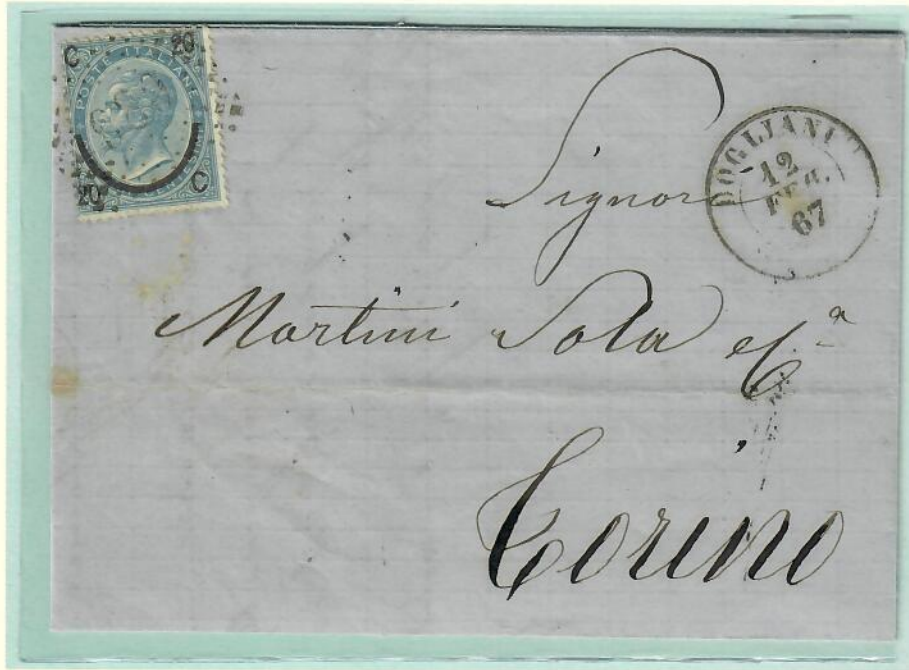 C 20
POSTE ITALIANE
20 C
DOGLIANI
12
FEB.
67
Signore
Martini Sola e C.a
Torino